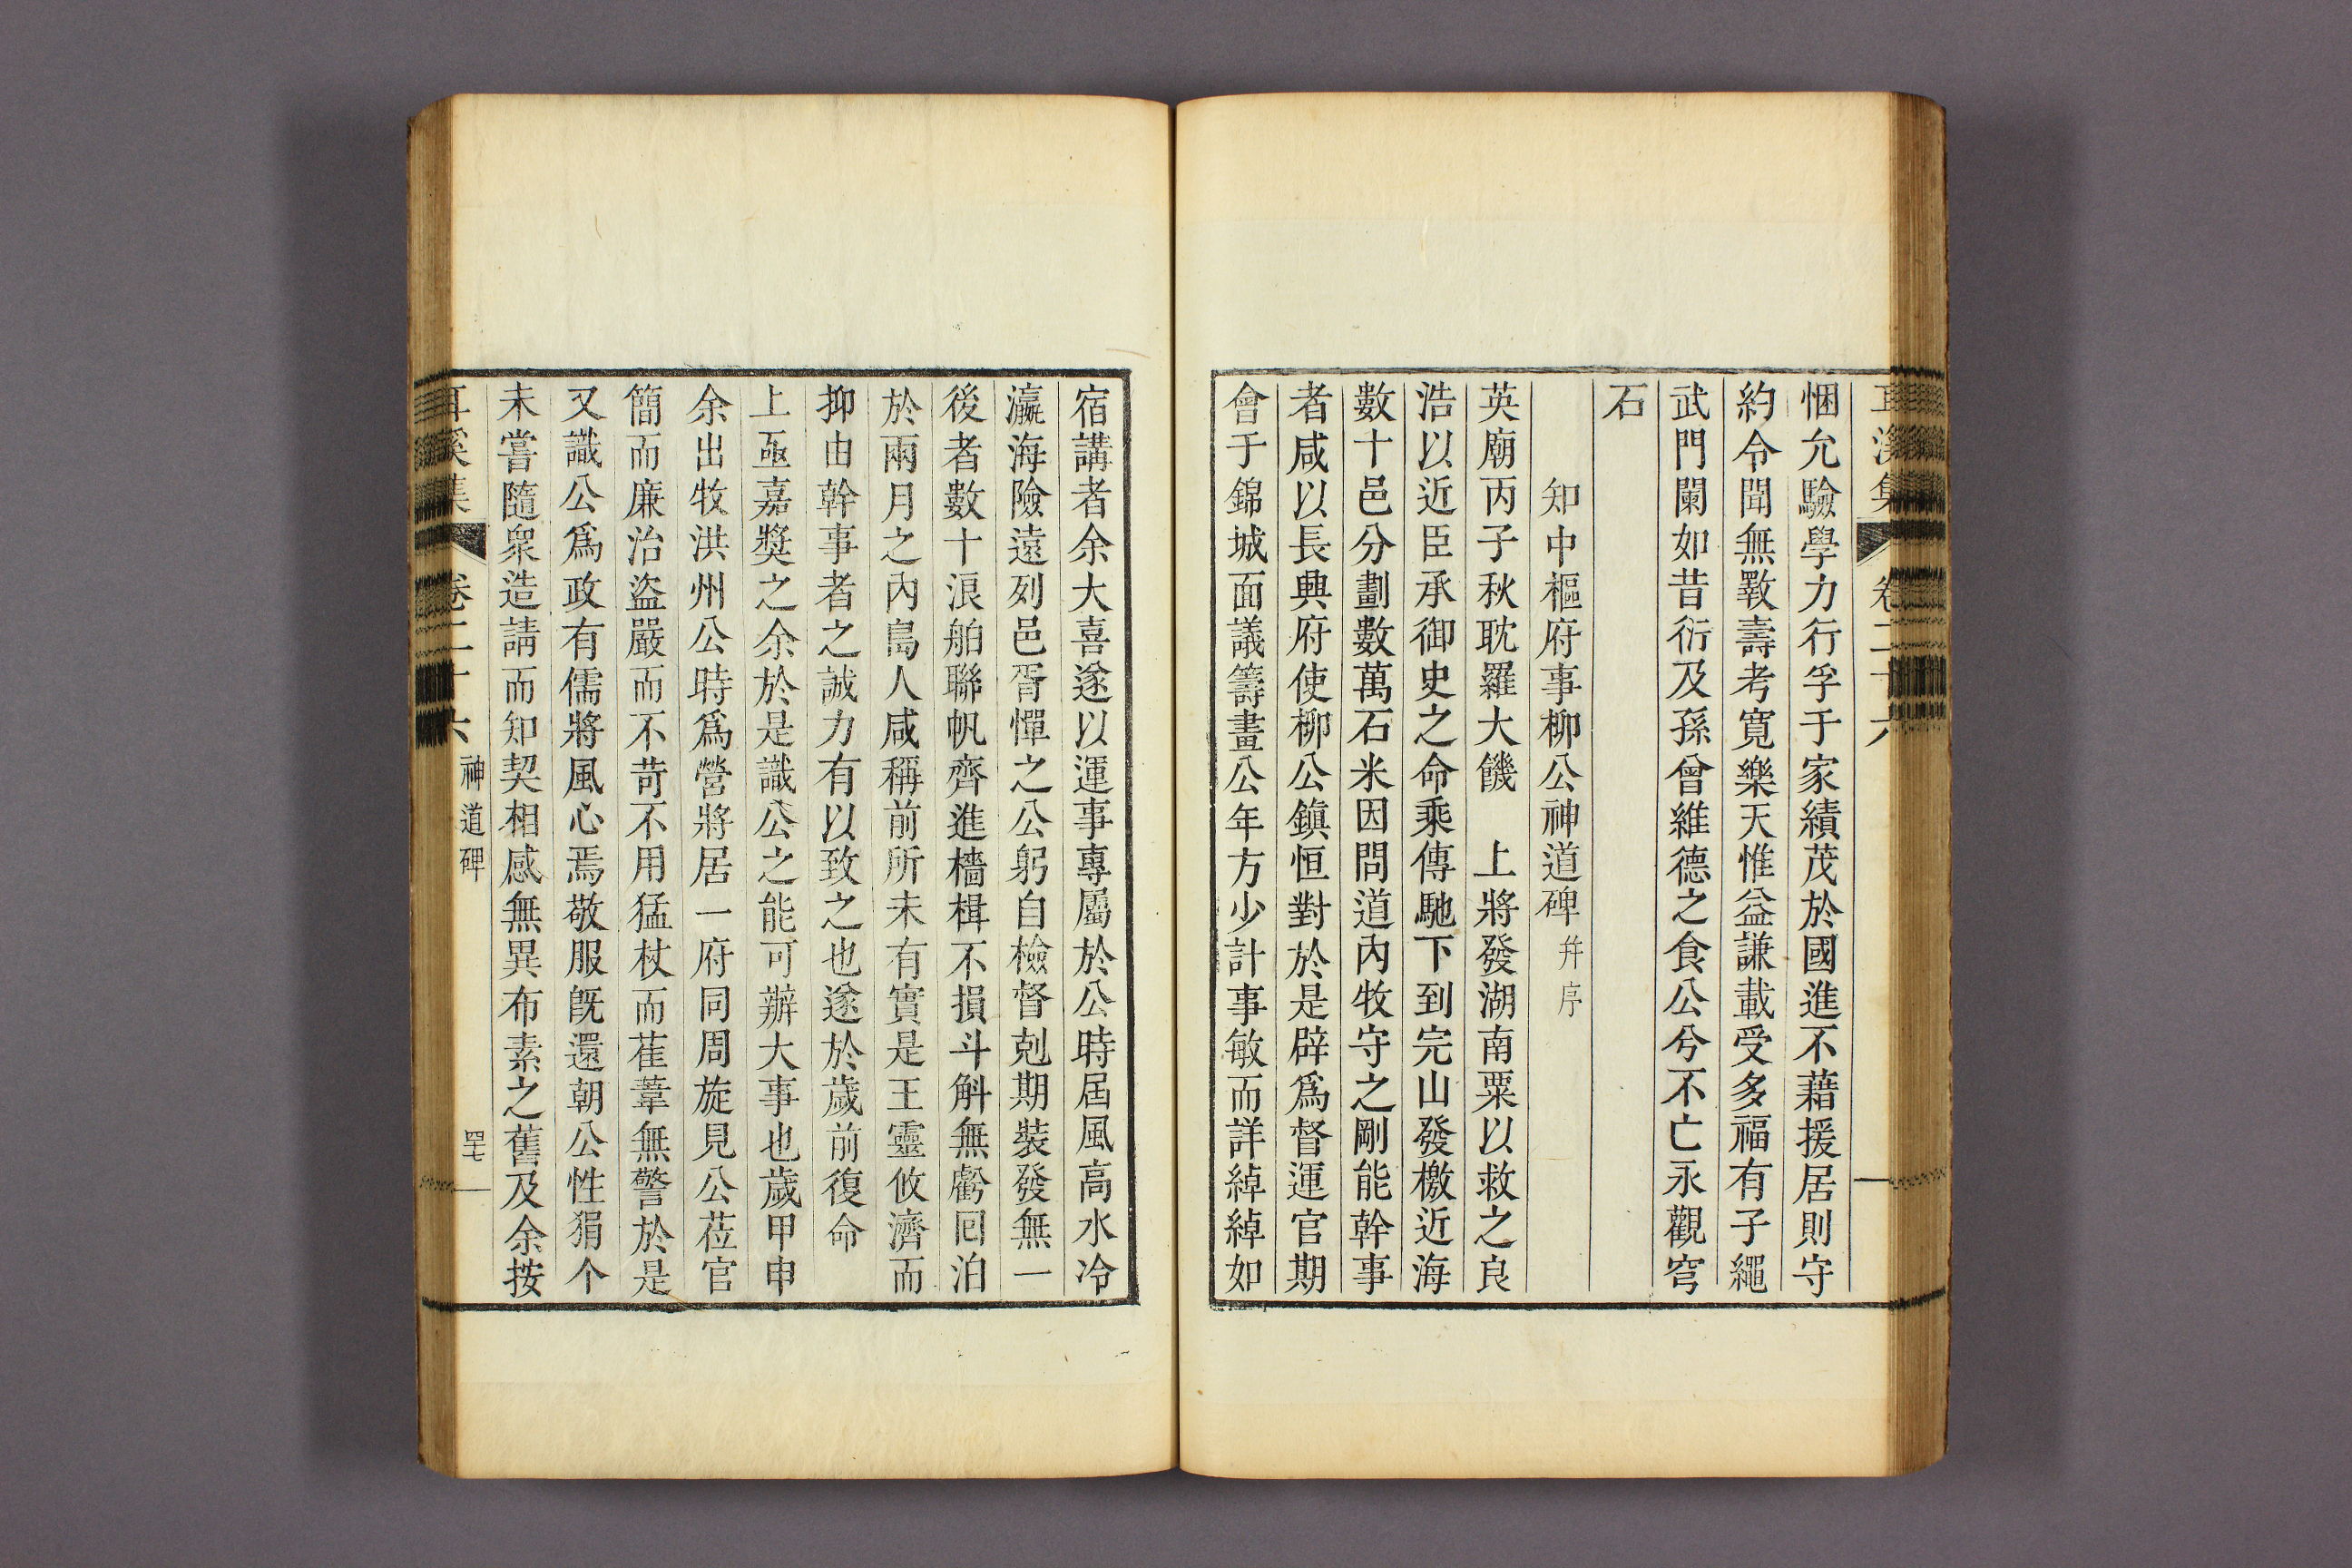 耳溪集 卷二十六
悃允驗學力行孚于家績茂於國進不藉援居則守
約令聞無斁壽考寬樂天惟益謙載受多福有子繩
武門闌如昔衍及孫曾維德之食公兮不亡永觀穹
石
知中樞府事柳公神道碑 幷序
英廟丙子秋耽羅大饑 上將發湖南粟以救之良
浩以近臣承御史之命乘傳馳下到完山發檄近海
數十邑分劃數萬石米因問道內牧守之剛能幹事
者咸以長興府使柳公鎭恒對於是辟爲督運官期
會于錦城面議籌畫公年方少計事敏而詳綽綽如
宿講者余大喜遂以運事專屬於公時屆風高水冷
瀛海險遠列邑胥憚之公躬自檢督剋期裝發無一
後者數十浪舶聯帆齊進檣楫不損斗斛無虧回泊
於兩月之內島人咸稱前所未有實是王靈攸濟而
抑由幹事者之誠力有以致之也遂於歲前復命
上亟嘉獎之余於是識公之能可辦大事也歲甲申
余出牧洪州公時爲營將居一府同周旋見公莅官
簡而廉治盜嚴而不苛不用猛杖而萑葦無警於是
又識公爲政有儒將風心焉敬服旣還朝公性狷介
未嘗隨衆造請而知契相感無異布素之舊及余按
耳溪集 卷二十六 神道碑 四七